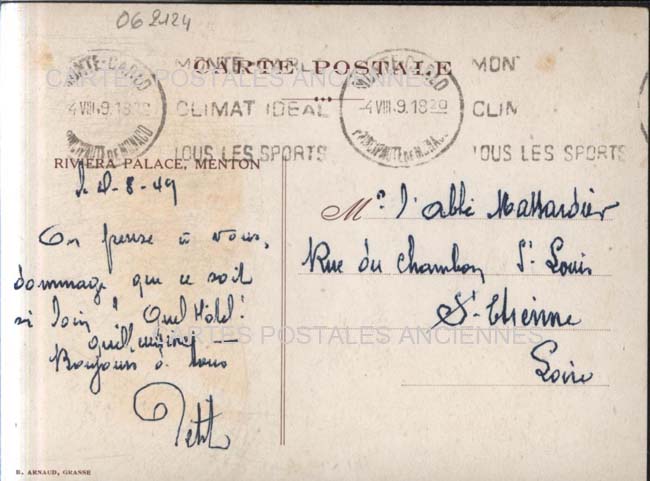 062124
MONTE-CARLO
CARTE POSTALE
MONTE-CARLO
MON
4 VIII 9.1820
CLIMAT IDÉAL
-4 VIII 9.1820
CLIM
PRINCIPAUTE DE MONACO
TOUS LES SPORTS
PRINCIPAUTE DE MONACO
TOUS LES SPORTS
CARTES POSTALES ANCIENNES
RIVIERA PALACE, MENTON
le 4-8-49
On pense à vous,
dommage que ce soit
si loin! Quel Hôtel!
quelle cuisine! —
Bonjours à tous
Petit
Mr. l'abbé Massardier
Rue du Chambon St. Louis
St-Etienne
Loire
CARTES POSTALES ANCIENNES
E. ARNAUD, GRASSE